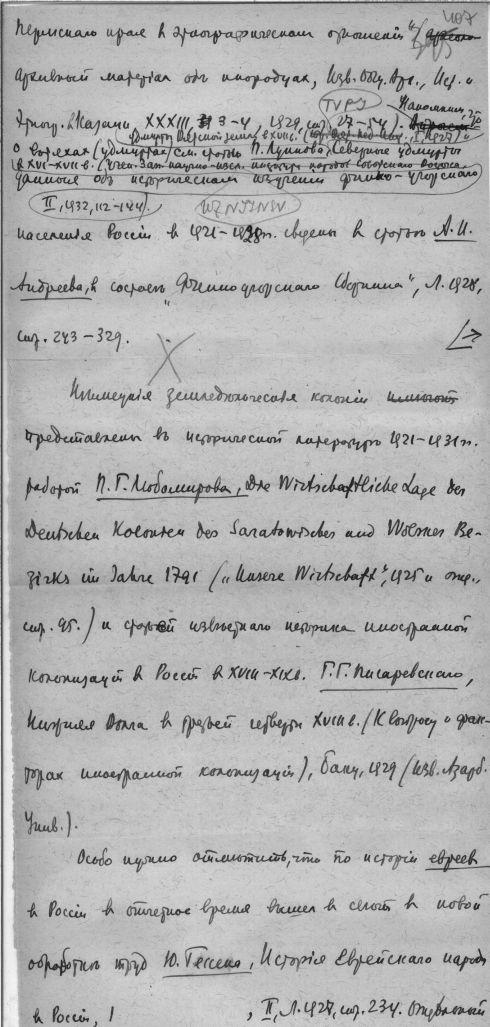 407
Пермскаго края в этнографическом отношенiи"(
Архивный матерiал объ инородцах, Изв. Общ. Арх., Ист. и
Этногр. в Казани, XXXIII, 3-4, 1929, стр. 27-54).
о вотяках (удмуртах/см. статью П. Луппова, Северные удмурты
в XVI-XVII в. (Учен. Зап. научно-иссл. института народов Советского Востока
данные объ историческом изученiи финно-угорскаго
II, 1932, 112-144).
населенiя Россiи в 1921-1928 гг. сведены в статье А. И.
Андреева, в составе "Финноугорскаго Сборника", Л. 1928,
стр. 243-329.
Немецкiя земледельческiя колонiи
представлены въ исторической литературе 1921-1931 гг.
работой П. Г. Любомирова, Die Wirtschaftliche Lage der
Deutschen Kolonien des Saratowschen und Wolsner Be-
zirks im Jahre 1791 ("Unsere Wirtschaft", 1925 и отд.,
стр. 95.) и статьей известнаго историка иностранной
колонизацiи в Россiи в XVIII-XIX в. Г. Г. Писаревскаго,
Нижняя Волга в третьей четверти XVIII в. (К вопросу о фак-
торах иностранной колонизацiи), Баку, 1929 (Изв. Азерб.
Унив.).
Особо нужно отметить, что по исторiи евреев
в Россiи в отчетное время вышел в свет в новой
обработке труд Ю. Гессена, Исторiя Еврейскаго народа
в Россiи, I , II, Л. 1927, стр. 234.